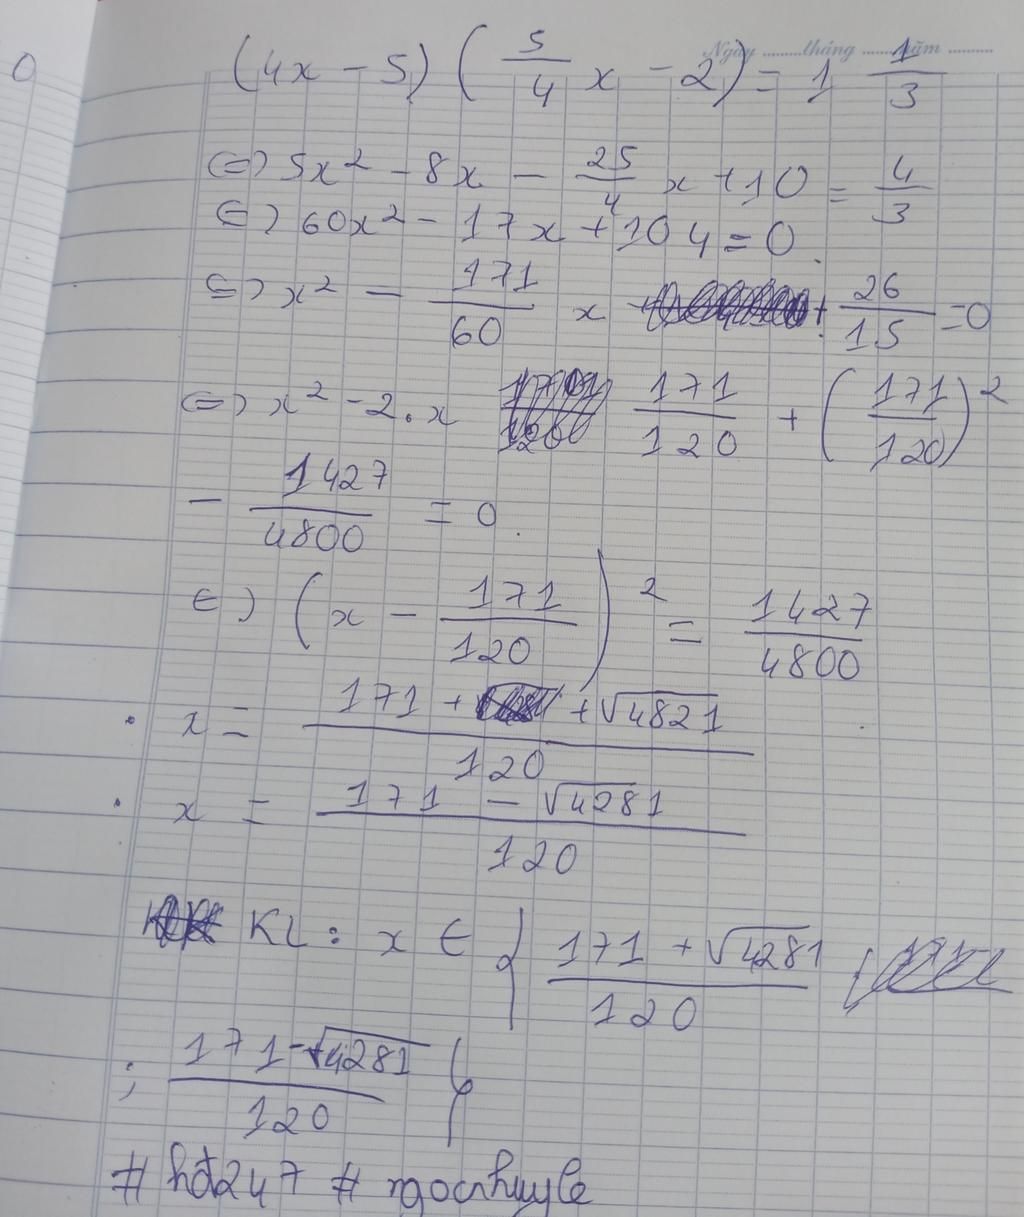 0
Ngày ..........tháng ..........năm ..........
(4x - 5) (5/4 x - 2) = 1 1/3
<=> 5x² - 8x - 25/4 x + 10 = 4/3
<=> 60x² - 17x + 104 = 0
<=> x² - 171/60 x + 26/15 = 0
<=> x² - 2.x 171/120 + (171/120)²
- 1427/4800 = 0
<=> (x - 171/120)² = 1427/4800
• x = (171 + + √4821)/120
• x = (171 - √4281)/120
KL: x ∈ { (171 + √4281)/120
; (171 - √4281)/120 }
# hđ247 # ngocnhuyle